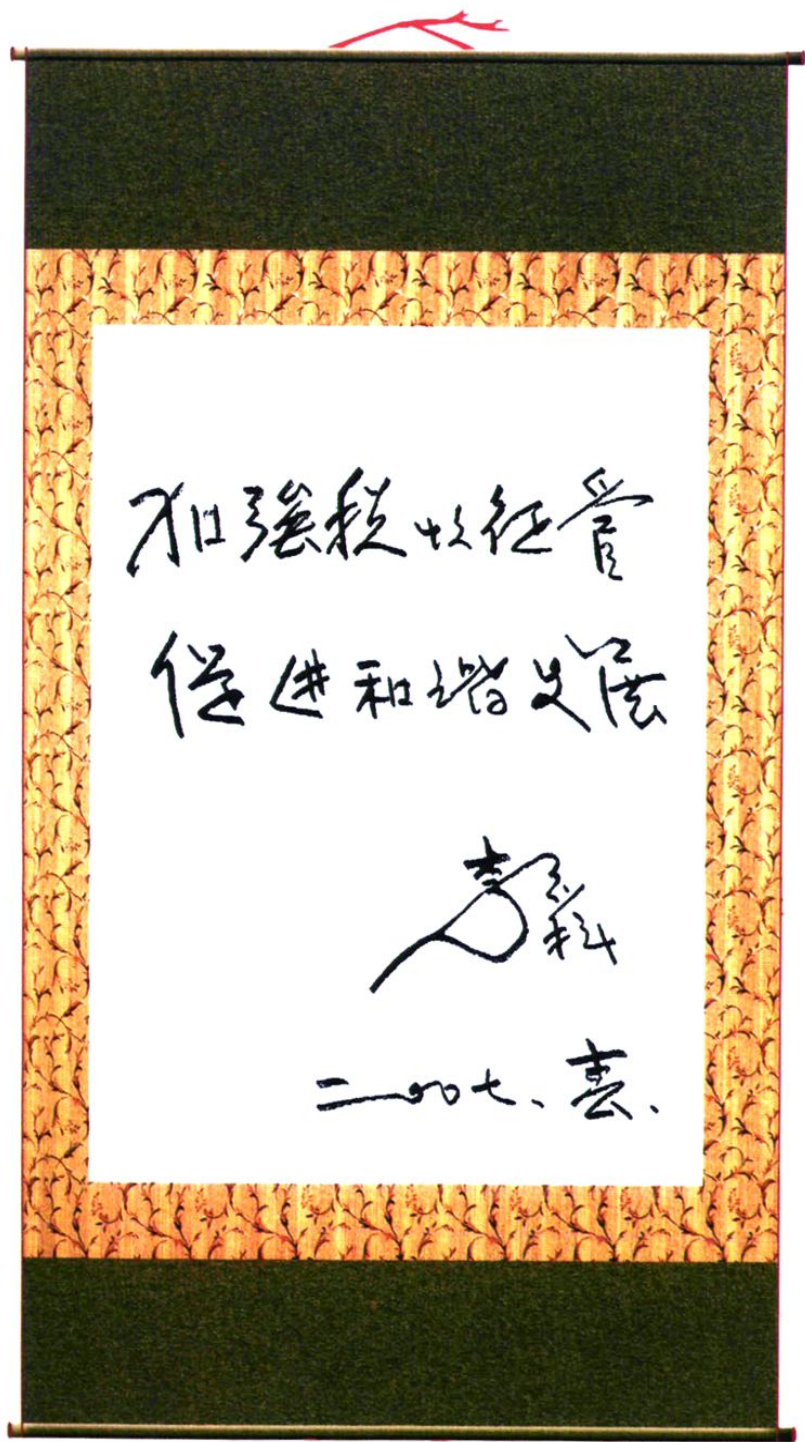 加強税收征管
促进和谐发展
二〇〇七、春、